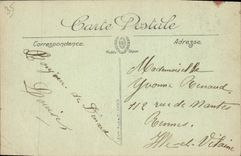 35
Carte Postale
Correspondance
Adresse
Bonjour de Dinard
Louise
Mademoiselle
Yvonne Renaud
112 rue de Nantes
Rennes
Ille-et-Vilaine